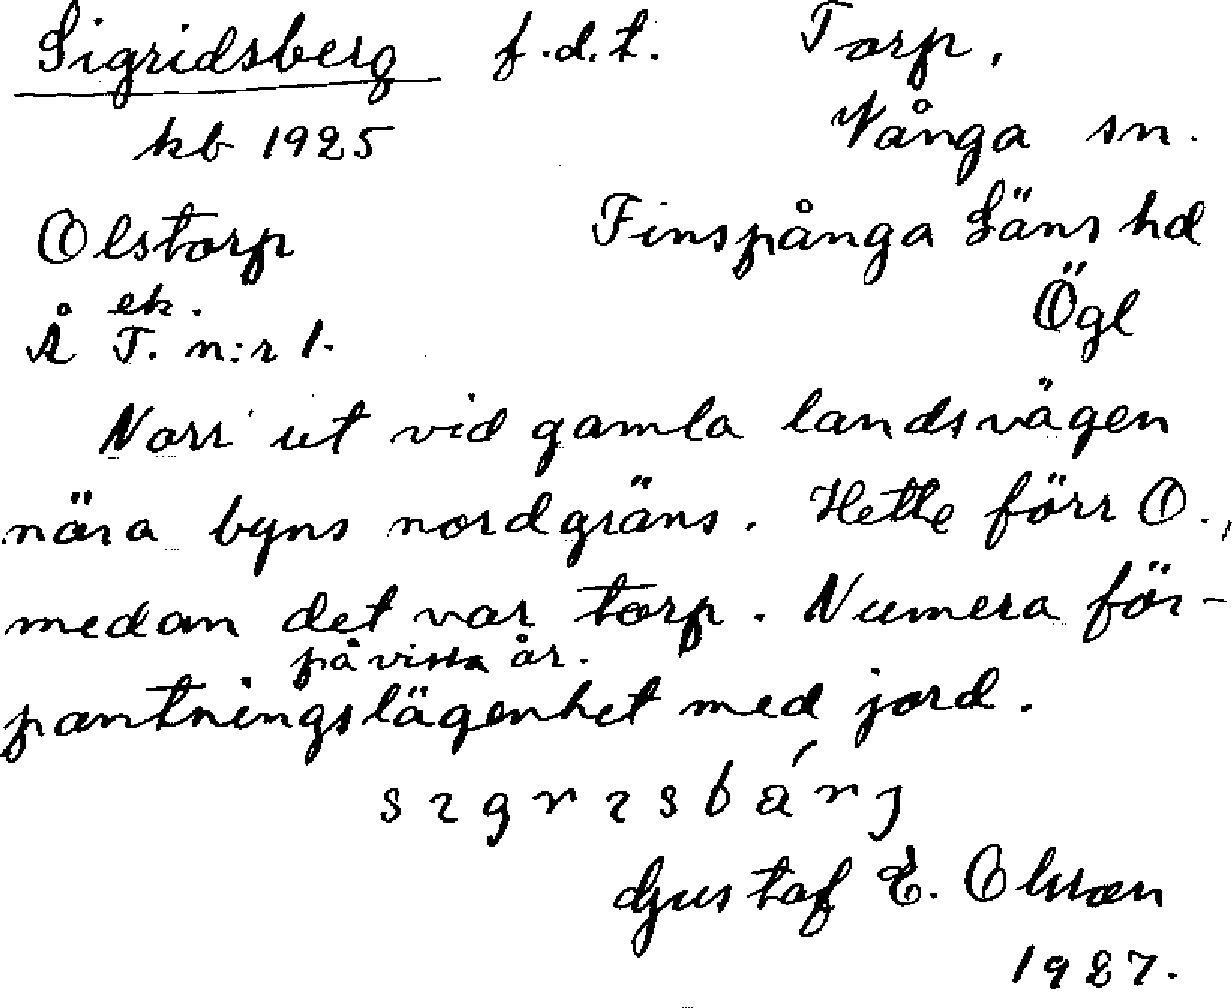 Sigridsberg f.d.t. Torp,
kb 1925 Vånga sn.
Olstorp Finspånga Läns hd
ek. Ögl
Å T. n:r 1.
Norr ut vid gamla landsvägen
nära byns nordgräns. Hette förr O.,
medan det var torp. Numera för-
på vissa år.
pantningslägenhet med jord.
Gustaf E. Olsson
1927.